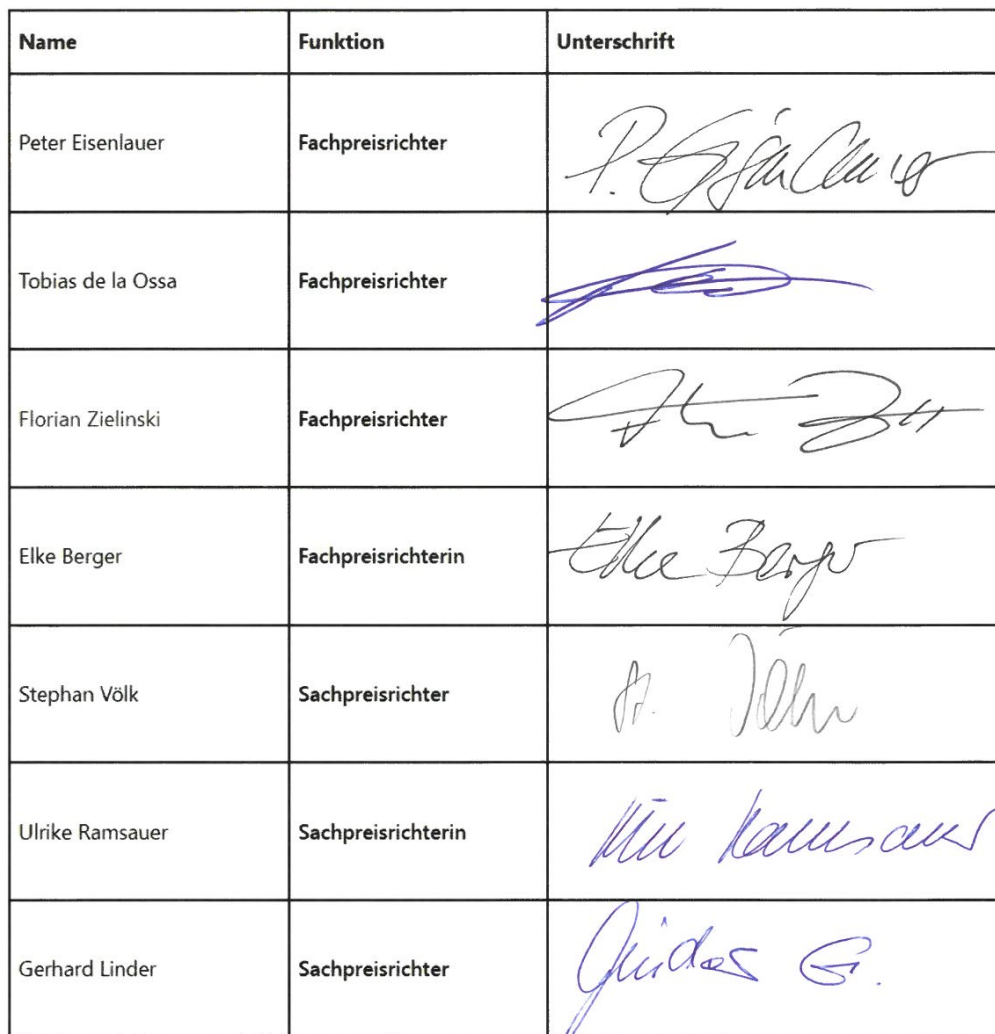 Name Funktion Unterschrift
Peter Eisenlauer Fachpreisrichter P. Eisenlauer
Tobias de la Ossa Fachpreisrichter
Florian Zielinski Fachpreisrichter
Elke Berger Fachpreisrichterin Elke Berger
Stephan Völk Sachpreisrichter St. Völk
Ulrike Ramsauer Sachpreisrichterin Ramsauer
Gerhard Linder Sachpreisrichter Linder G.